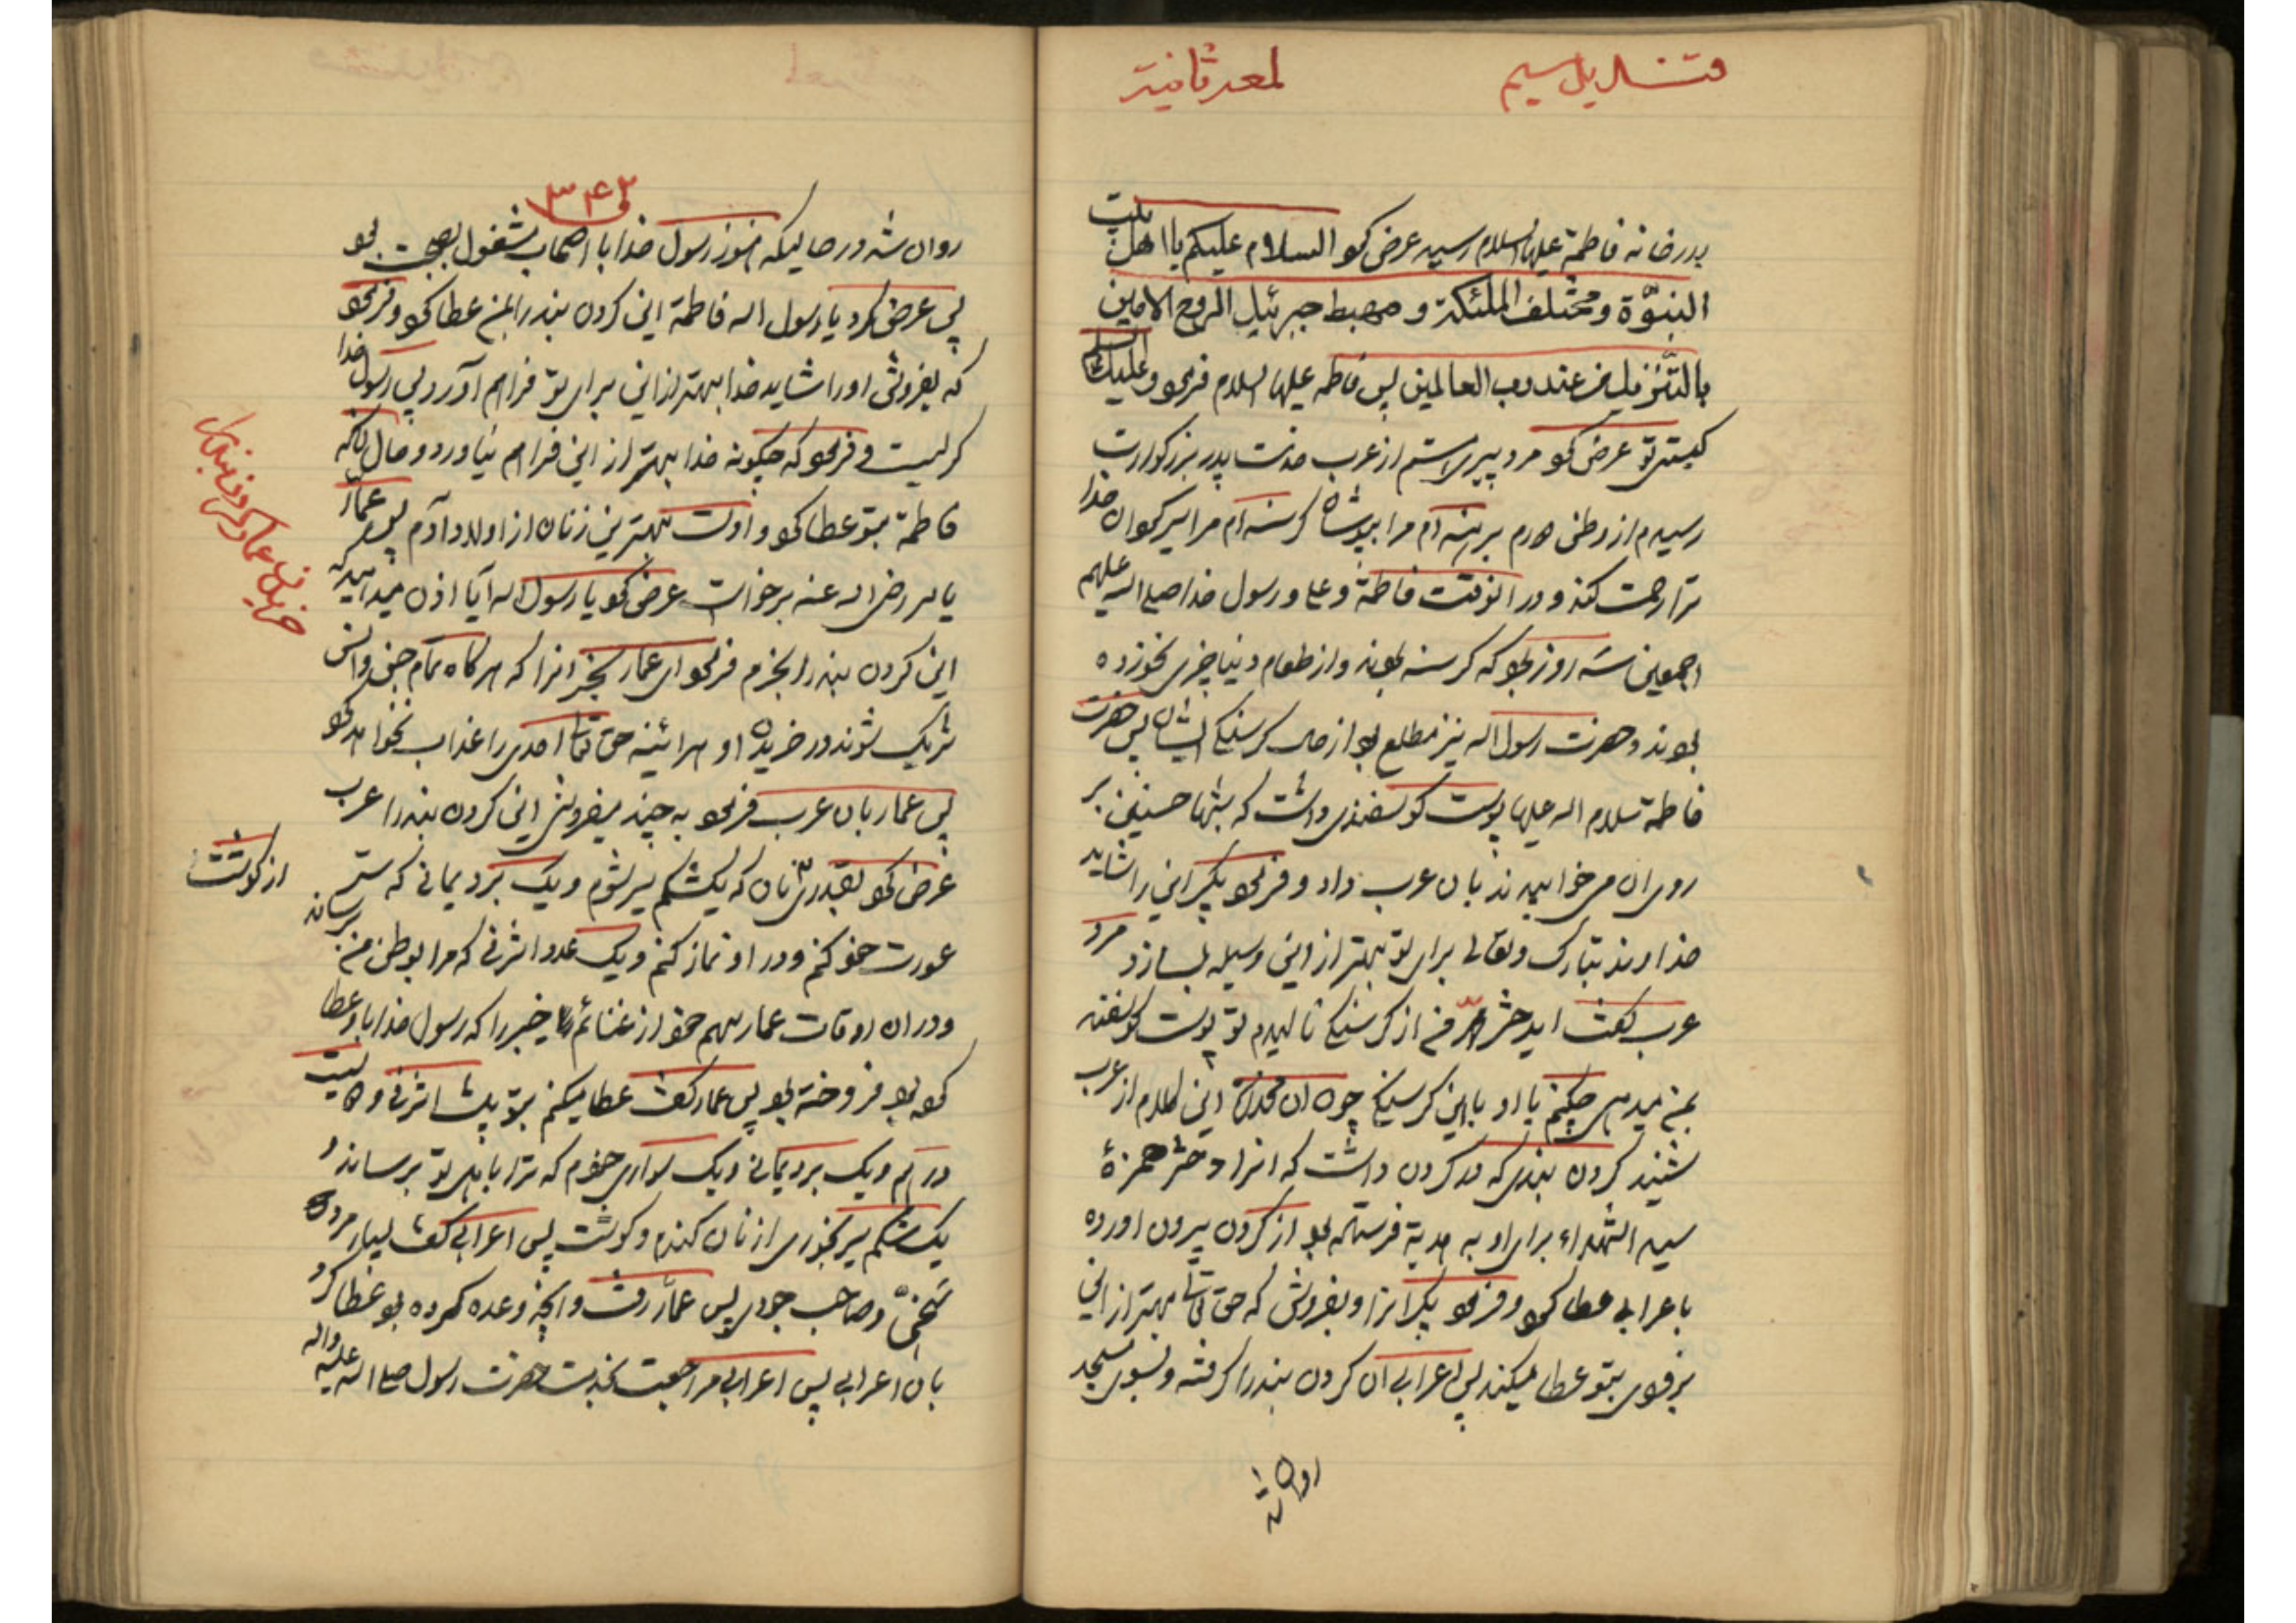 قنادیل سیم
لمعه ثانیة
بدر خانه فاطمة علیها السلام رسید عرض کرد السلام علیکم یا اهل بیت
النبوّة و مختلف الملئکة و مهبط جبرئیل الروح الامین
بالتّنزیل من عند رب العالمین پس فاطمه علیها السلام فرمود و علیک السلام
کیستی تو عرض کرد مرد پیری هستم از عرب خدمت پدر بزرگوارت
رسیدم از وطن دورم برهنه‌ام مرا بپوشان گرسنه‌ام مرا سیر کن خدا
ترا رحمت کند و در انوقت فاطمة و علی و رسول خدا صلی الله علیهم
اجمعین سه روز بود که گرسنه بودند و از طعام دنیا چیزی نخورده
بودند و حضرت رسول اله نیز مطلع بود از حال گرسنگی ایشان پس حضرت
فاطمة سلام اله علیها پوست گوسفندی داشت که شبها حسنین بر
روی ان می خوابیدند بان عرب داد و فرمود بگیر این را شاید
خداوند تبارک و تعالی برای تو بهتر از این وسیله بسازد مرد
عرب گفت ایدختر محمّد من از گرسنگی نالیدم تو پوست گوسفند
بمن میدهی چکنم با او با این گرسنگی چون ان مخدره این کلام از عرب
شنید گردن بندی که در گردن داشت که انرا دختر حمزهٔ
سید الشهداء برای او به هدیة فرستاده بود از گردن بیرون اورده
باعرابی عطا کرد و فرمود بگیر انرا و بفروش که حق تعالی بهتر از این
بزودی بتو عطا میکند پس اعرابی ان گردن بند را گرفته و بسوی مسجد
روان شد
۳۴۲
روان شد در حالیکه هنوز رسول خدا با اصحاب مشغول بصحبت بود
پس عرض کرد یا رسول اله فاطمة این گردن بند را بمن عطا کرد و فرمود
که بفروش او را شاید خدا بهتر از این برای تو فراهم آورد پس رسول خدا
گریست و فرمود که چگونه خدا بهتر از این فراهم نیاورد و حال آنکه
فاطمة بتو عطا کرد و اوست بهترین زنان از اولاد آدم پس عمار
یاسر رضی اله عنه برخواست عرض کرد یا رسول اله آیا اذن میدهید که
این گردن بند را بخرم فرمود ای عمار بخر انرا که هر گاه تمام جن و انس
شریک شوند در خریدن او هرائینه حق تعالی احدی را عذاب نخواهد کرد
پس عمار بان عرب فرمود به چند میفروشی این گردن بند را عرب
عرض کرد بقدری نان که یکشکم سیر شوم و یک برد یمانی که ستر
عورت خود کنم و در او نماز کنم و یک عدد اشرفی که مرا بوطن من برساند
و در ان اوقات عمار سهم خود از غنائم خیبر را که رسول خدا باو عطا
کرده بود فروخته بود پس عمار گفت عطا میکنم بتو بیست اشرفی و دویست
درهم و یک برد یمانی و یک سواری خودم که ترا باهل تو برساند و
یک شکم سیر بخوری از نان گندم و گوشت پس اعرابی گفت بسیار مرد
سخیّ و صاحب جودی پس عمار رفت و انچه وعده کرده بود عطا کرد
بان اعرابی پس اعرابی مراجعت بخدمت حضرت رسول صلی اله علیه واله
خریدن عمار گردن بند را
از گوشت